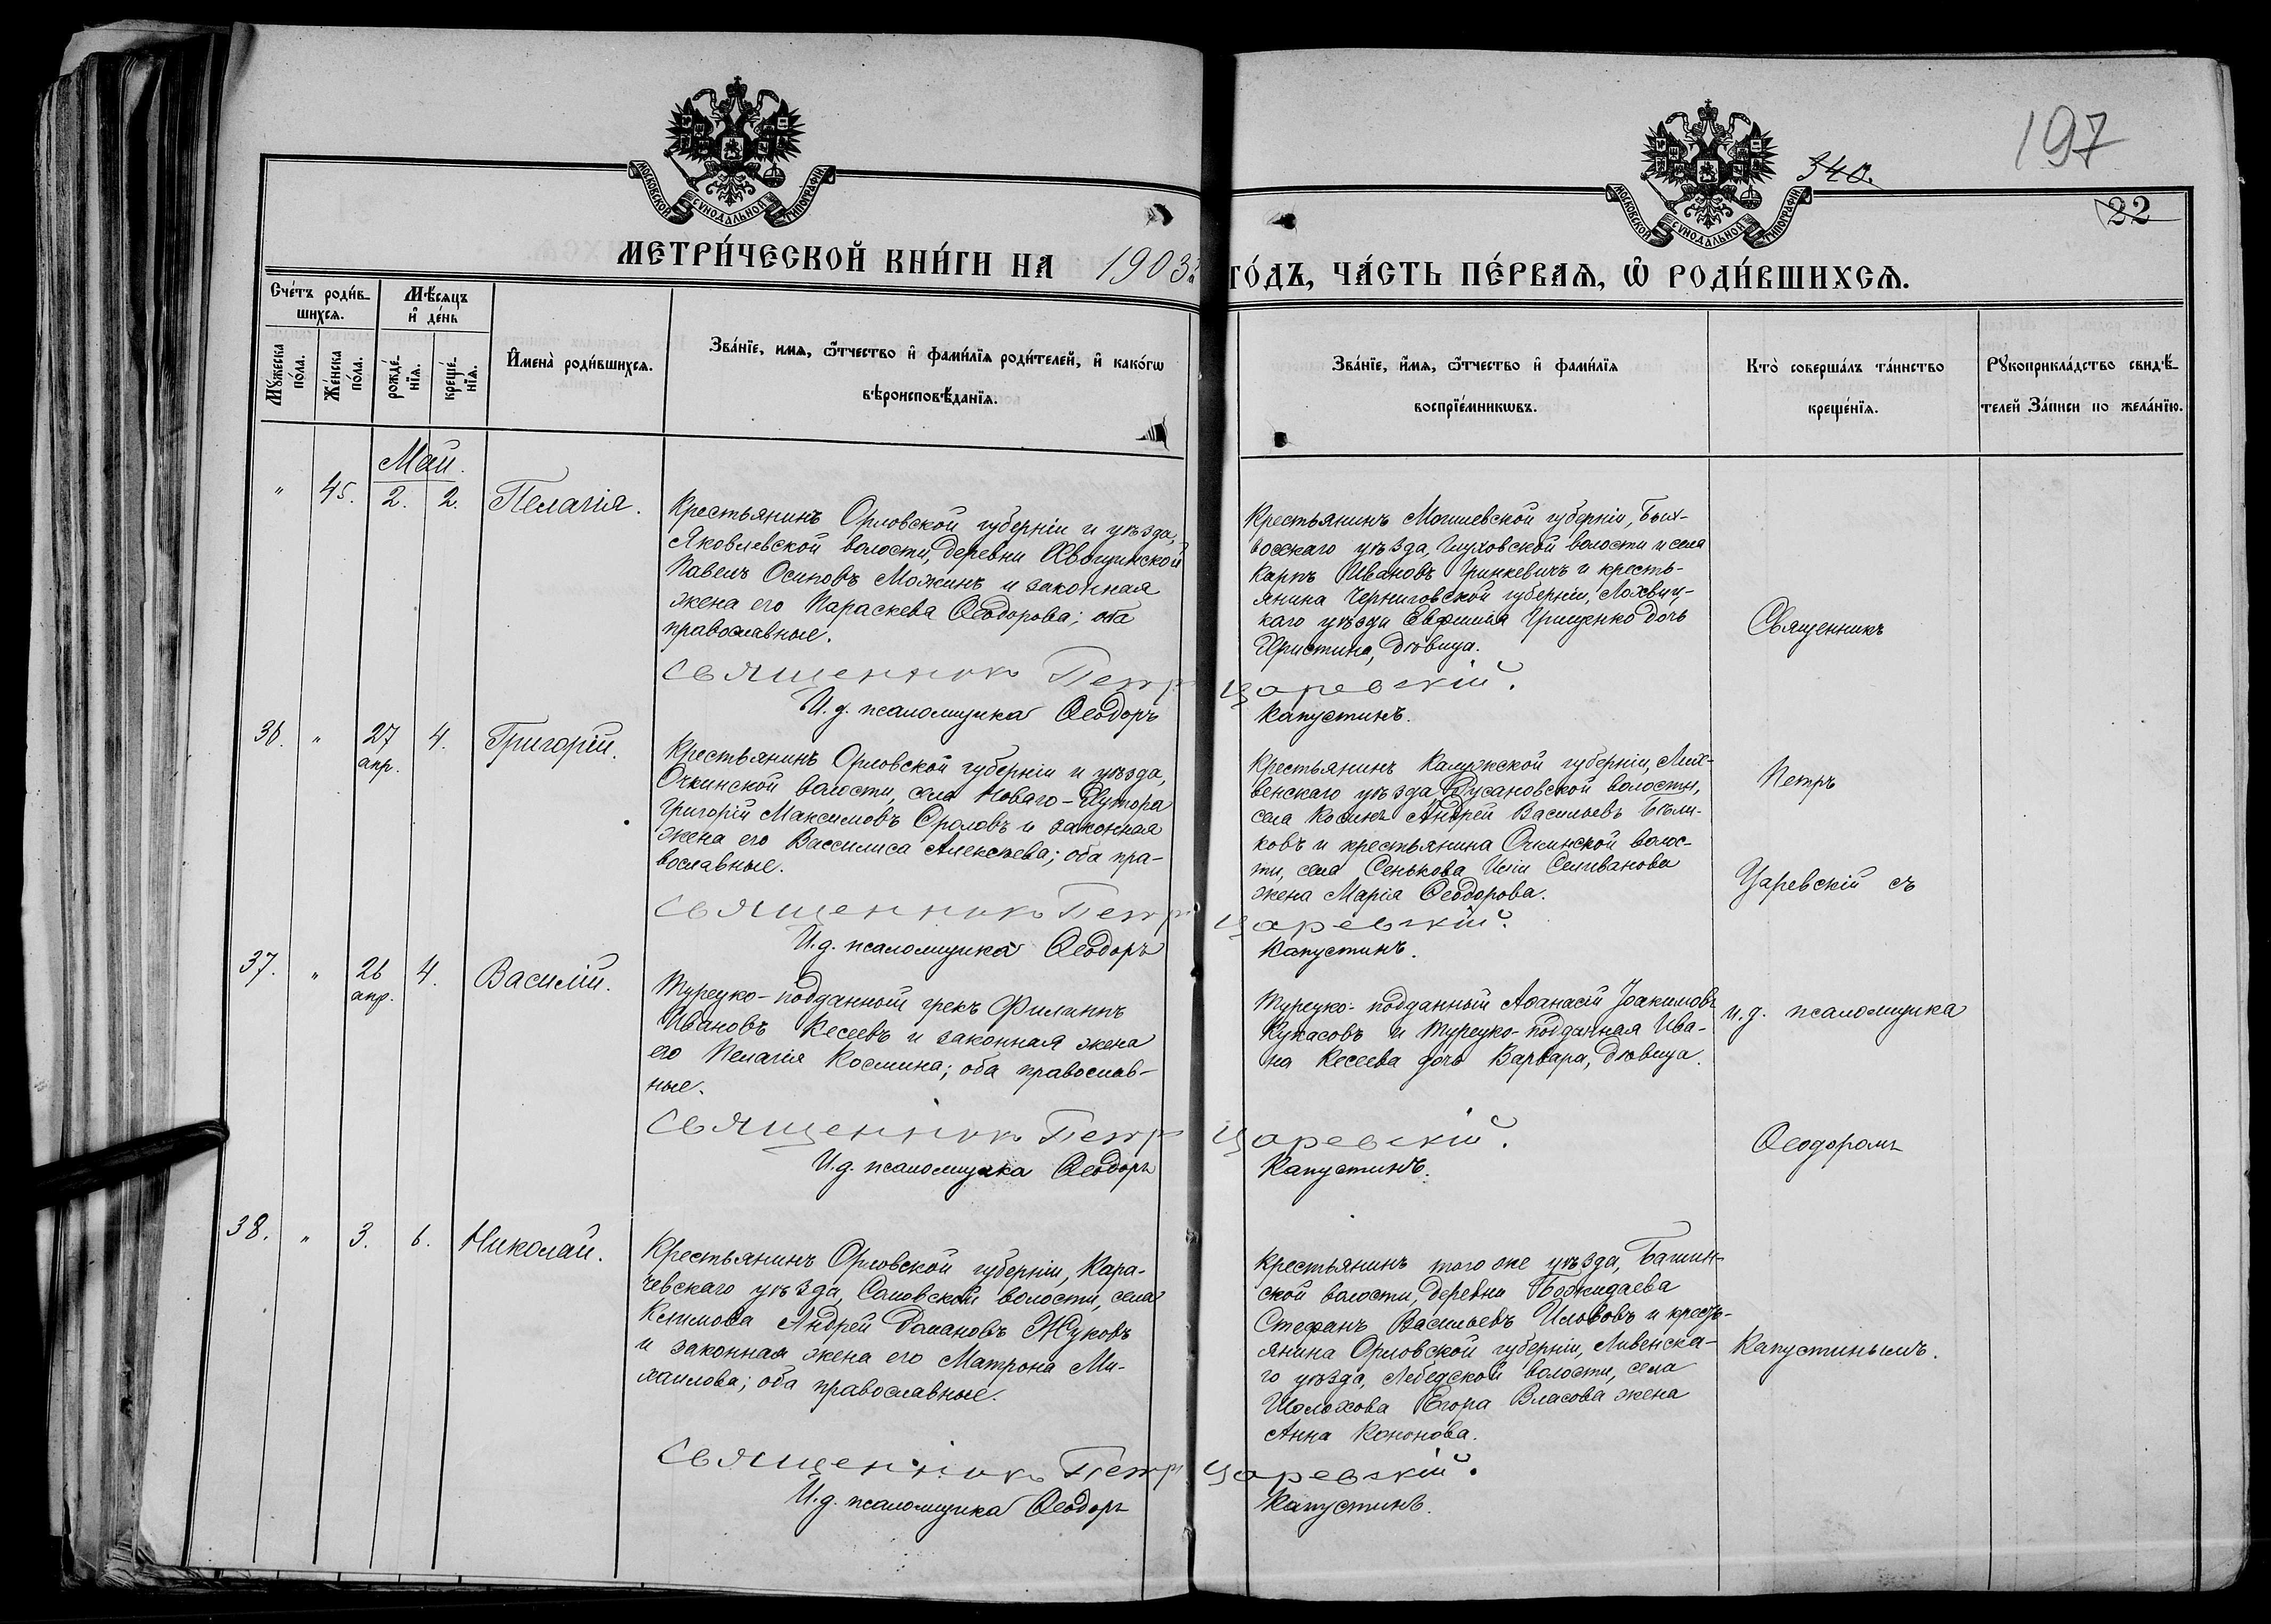 МОСКОВСКОЙ СУНОДАЛЬНОЙ ТИПОГРАФІИ
МОСКОВСКОЙ СУНОДАЛЬНОЙ ТИПОГРАФІИ
340.
197
22
МЕТРИ́ЧЕСКОЙ КНИ́ГИ НА 1903
ГО́ДЪ, ЧА́СТЬ ПЕ́РВАѦ, Ѡ҆ РОДИ́ВШИХСѦ.
Сче́тъ роди́в-
шихсѧ.
Мѣ́сѧцъ
и҆ де́нь
Мꙋ́жеска
по́ла.
Же́нска
по́ла.
рожде́-
нїѧ.
креще́-
нїѧ.
И҆мена̀ роди́вшихсѧ.
Зва́нїе, имѧ, ѻ҆́тчество и҆ фами́лїѧ роди́телей, и҆ како́гѡ
вѣроисповѣ́данїѧ.
Зва́нїе, и҆́мѧ, ѻ҆́тчество и҆ фами́лїѧ
воспрїе́мникѡвъ.
Кто̀ соверша́лъ та́инство
креще́нїѧ.
Рꙋкоприкла́дство свидѣ́-
телей За́писи по жела́нїю.
Май.
" 45. 2. 2. Пелагія.
Крестьянинъ Орловской губерніи и уѣзда,
Яковлевской волости, деревни
Павелъ Осиповъ Можинъ и законная
жена его Параскева Ѳеодорова; оба
православные.
Священникъ Петръ Царевскій.
И.д. псаломщика Ѳеодоръ Капустинъ.
Крестьянинъ Могилевской губерніи, Бых-
овскаго уѣзда, Глуховской волости и села
Карпъ Ивановъ Гринкевичъ и кресть-
янина Черниговской губерніи, Лохвиц-
каго уѣзда Евфимія Грищенко дочь
Христина, дѣвица.
Священникъ
36. " 27 апр. 4. Григорій.
Крестьянинъ Орловской губерніи и уѣзда,
Очкинской волости, села Новаго-Хутора
Григорій Максимовъ Фроловъ и законная
жена его Вассилиса Алексѣева; оба пра-
вославные.
Священникъ Петръ Царевскій.
И.д. псаломщика Ѳеодоръ Капустинъ.
Крестьянинъ Калужской губерніи, Лих-
венскаго уѣзда волости,
села Косинъ Андрей Васильевъ Бѣли-
ковъ и крестьянина Очкинской волос-
ти, села Сенькова Иліи Селиванова
жена Марія Ѳеодорова.
Петръ
Царевскій съ
37. " 26 апр. 4. Василій.
Турецко-подданный грекъ Филиппъ
Ивановъ Кесеевъ и законная жена
его Пелагія Космина; оба православ-
ные.
Священникъ Петръ Царевскій.
И.д. псаломщика Ѳеодоръ Капустинъ.
Турецко-подданный Аѳанасій Іоакимовъ
Кукасовъ и турецко-подданная Ива-
на Кесеева дочь Варвара, дѣвица.
и.д. псаломщика
Ѳеодоромъ
38. " 3. 6. Николай.
Крестьянинъ Орловской губерніи, Кара-
чевскаго уѣзда, волости, села
Климова Андрей Романовъ Жуковъ
и законная жена его Матрона Ми-
хаилова; оба православные.
Священникъ Петръ Царевскій.
И.д. псаломщика Ѳеодоръ Капустинъ.
Крестьянинъ того же уѣзда,
ской волости, деревни Божидаева
Стефанъ Васильевъ и кресть-
янина Орловской губерніи, Ливенска-
го уѣзда, Лебедской волости, села
Шолохова Егора Власова жена
Анна Кононова.
Капустинымъ.